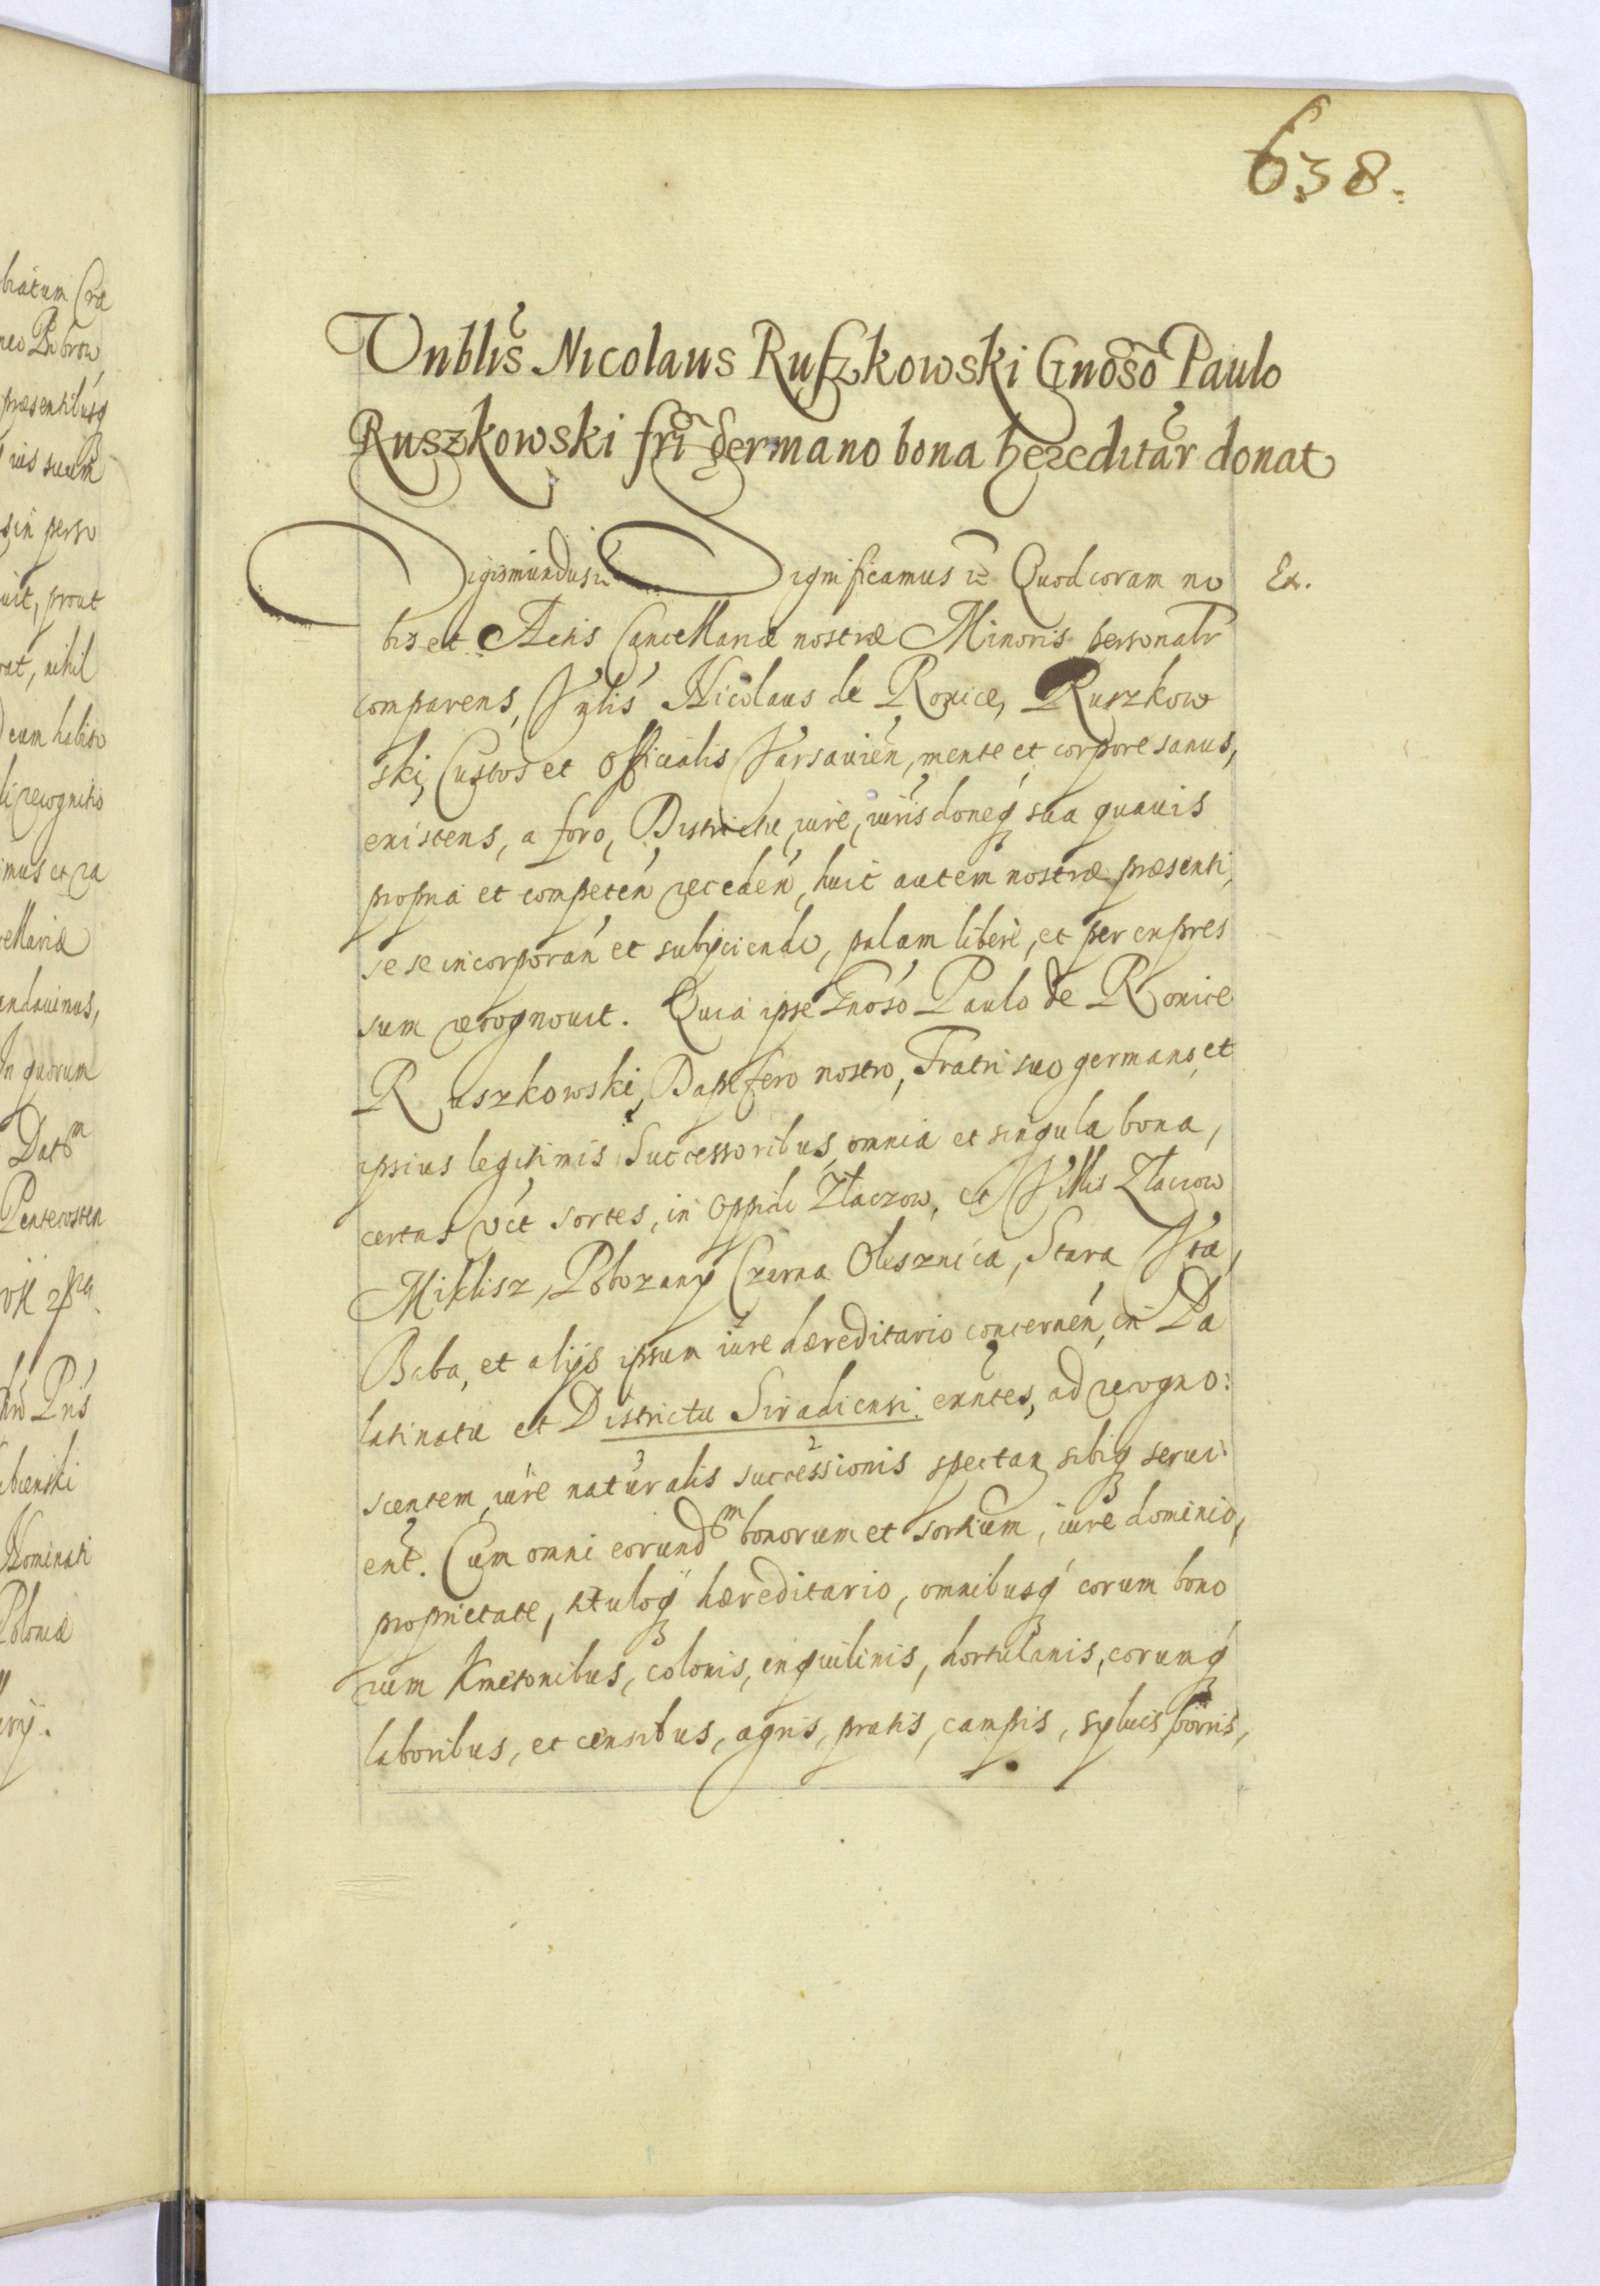 638.
Vnblis Nicolaus Ruszkowski Gnoso Paulo
Ruszkowski fri germano bona hereditar donat
Sigismundus Significamus Quod coram no Ex.
bis et Actis Cancellariæ nostræ Minoris personalr
comparens, Nicolaus de Ruszkow
ski, Custos et Officialis Varsauien, mente et corpore sanus,
existens, a foro, iure, sua quauis
propria et competen receden, huic autem nostræ præsenti,
sese incorporan et subyciendo, palam libere, et per expres
sum recognouit. Quia ipse Gnoso Paulo de
Ruszkowski, Dapifero nostro, Fratri suo germano, et
ipsius legitimis Successoribus, omnia et singula bona,
certas sortes, in Oppido Złaczow, et Villis Złaczow
Miklisz, Czarna Olesznica, Stara
Baba, et alijs ipsum iure hæreditario concernen, in Pa
latinatu et Districtu Siradiensi exntes, ad recogno:
scentem iure naturalis successionis spectan sibiq serui:
ent. Cum omni eorundm bonorum et sortium, iure dominio,
proprietate, tituloq hæreditario, omnibusq eorum bono
rum Kmetonibus, colonis, inquilinis, hortulanis, eorumq
laboribus, et censibus, agris, pratis, campis, syluis borris,
biatum Cra
præsentibusq
suum
in perso
uit, prout
rat, nihil
eum
recognitio
mus et ra
ellariæ
andauimus,
In quorum
Datm
Pentecosten
Nominati
Poloniæ